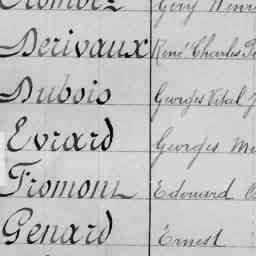 Gery Henri
Derivaux René Charles
Dubois Georges Vital
Evrard Georges
Fromont Edouard
Genard Ernest